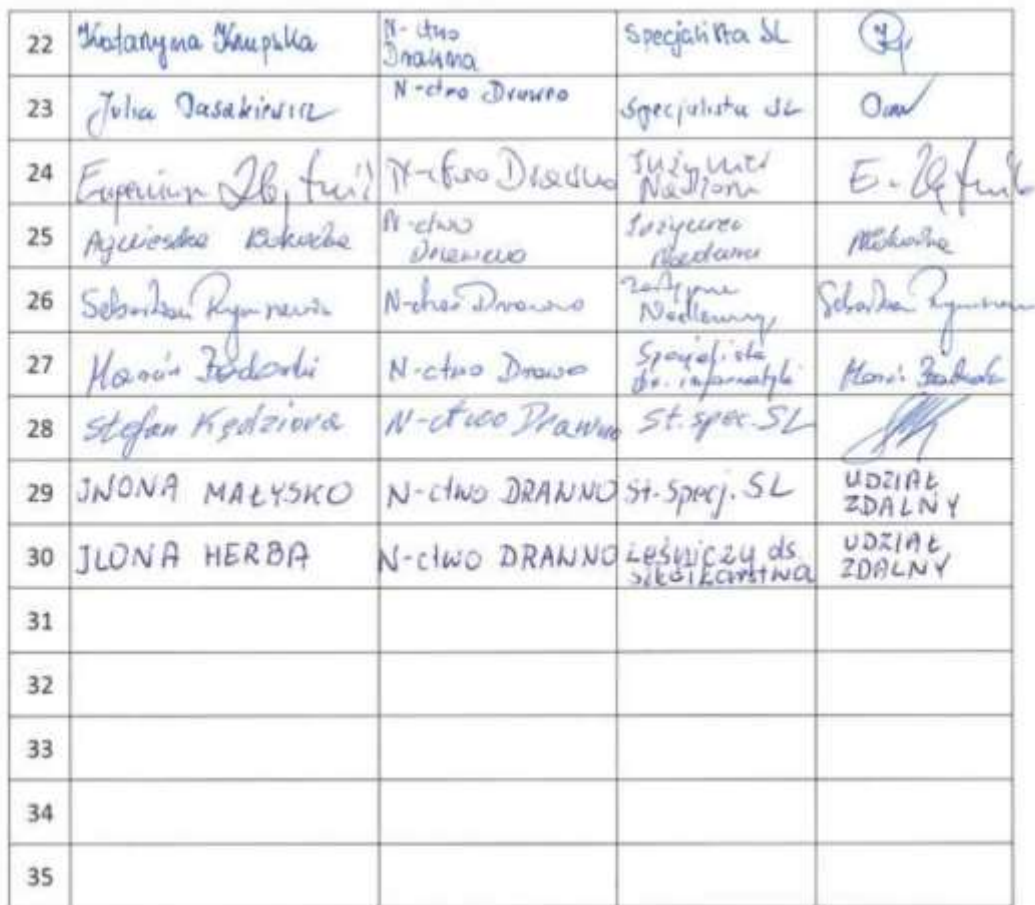 22 Katarzyna Krupka N-ctwo Drawna Specjalista SL
23 Julia N-ctwo Drawno Specjalista SL
24 Eugeniusz N-ctwo Drawno Inżynier Nadzoru E.
25 Agnieszka N-ctwo Drawno Inżynier Nadzoru
26 Sebastian N-ctwo Drawno Zastępca Nadleśn. Sebastian
27 Marcin N-ctwo Drawno Specjalista ds. informatyki Marcin
28 Stefan Kędziora N-ctwo Drawno St. spec. SL
29 IWONA MAŁYSKO N-ctwo DRAWNO St. Specj. SL UDZIAŁ ZDALNY
30 ILONA HERBA N-ctwo DRAWNO Leśniczy ds. szkółkarstwa UDZIAŁ ZDALNY
31
32
33
34
35